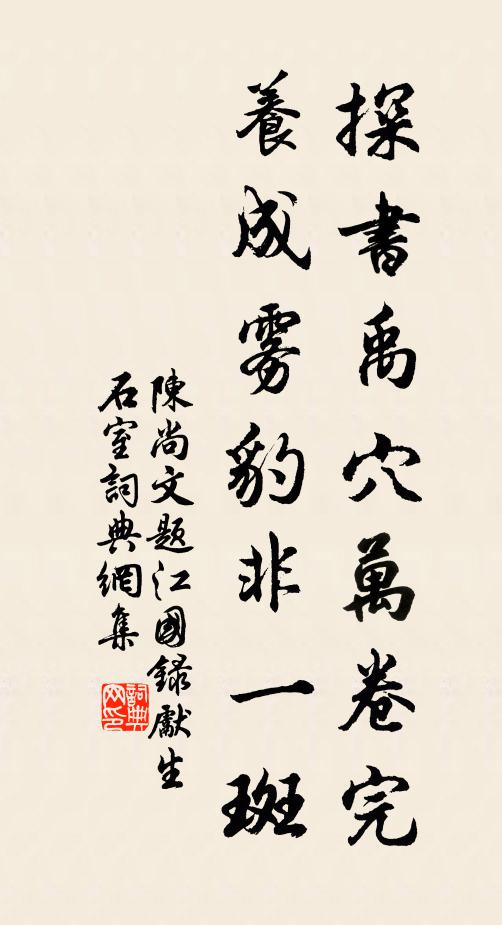 探書禹穴萬卷完
養成雾豹非一斑
陳尚文題江國錄獻生
石室詞典網集
詞典网印